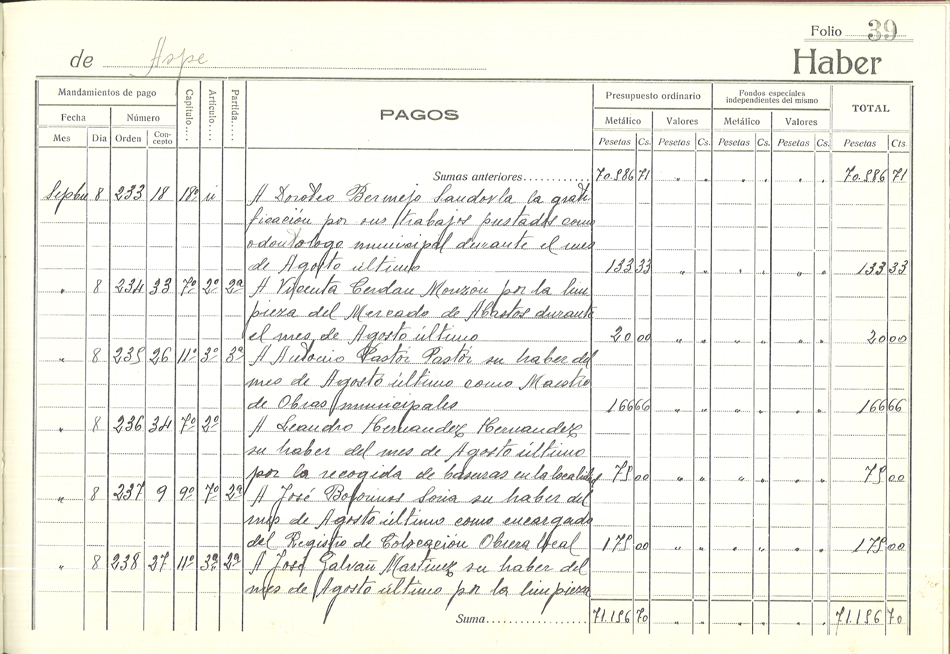 Folio 39
de Aspe
Haber
Mandamientos de pago Capítulo.... Artículo.... Partida.... PAGOS Presupuesto ordinario Fondos especiales independientes del mismo TOTAL
Fecha Número Metálico Valores Metálico Valores
Mes Día Orden Concepto Pesetas Cs. Pesetas Cs. Pesetas Cs. Pesetas Cs. Pesetas Cts.
Sumas anteriores............ 70.986 71 " " " " " " 70.986 71
8 233 18 18º A Bermejo la grati-
ficación por sus trabajos prestados como
odontólogo municipal durante el mes
de Agosto último 133 33 " " " " " " 133 33
" 8 234 33 7º 2º 2ª A Vicenta Cerdan Monzon por la lim
pieza del Mercado de Abastos durante
el mes de Agosto último 20 00 " " " " " " 20 00
" 8 235 26 11º 3º 3ª A Antonio Pastor Pastor su haber del
mes de Agosto último como Maestro
de Obras municipales 166 66 " " " " " " 166 66
" 8 236 34 7º 2º A Leandro Hernandez Hernandez
su haber del mes de Agosto último
por la recogida de basuras en la localidad 75 00 " " " " " " 75 00
" 8 237 9 9º 7º 2ª A José Soria su haber del
mes de Agosto último como encargado
del Registro de Colocación Obrera local 175 00 " " " " " " 175 00
" 8 238 27 11º 3º 2ª A José Galvañ Martinez su haber del
mes de Agosto último por la limpieza
Suma................... 71.556 70 " " " " " " 71.556 70